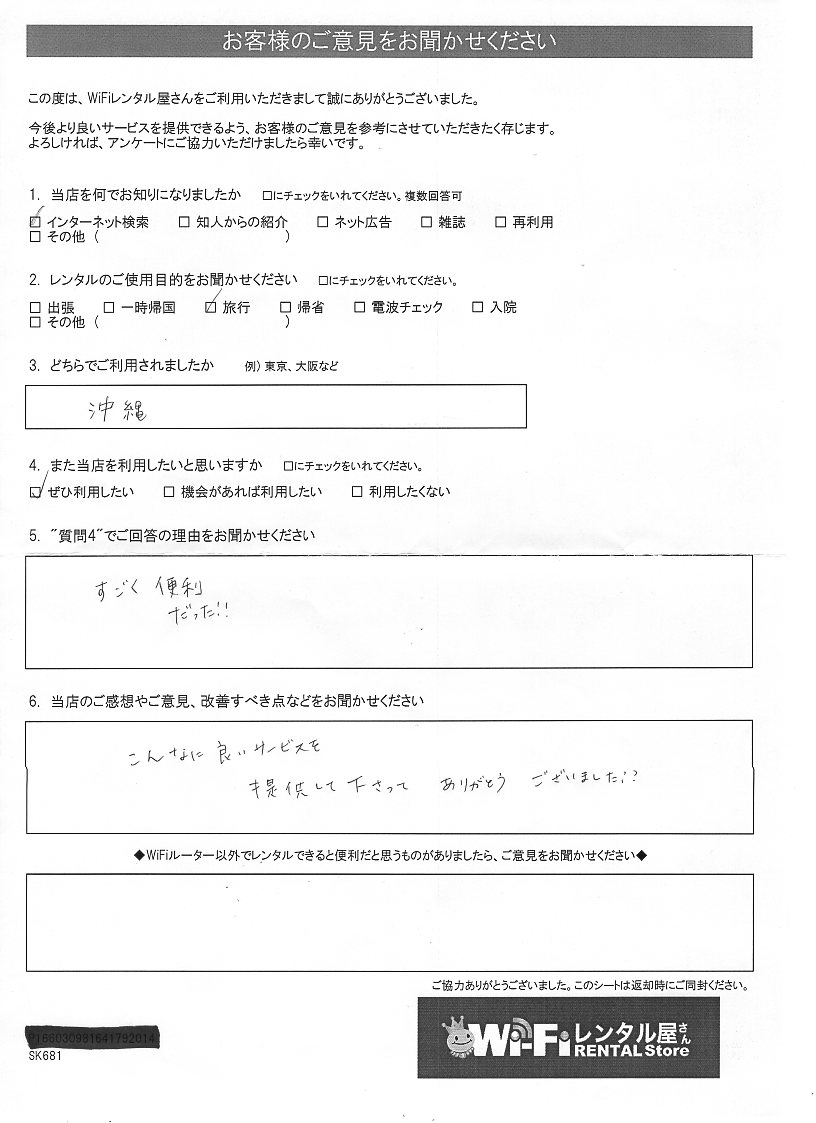 お客様のご意見をお聞かせください
この度は、WiFiレンタル屋さんをご利用いただきまして誠にありがとうございました。
今後より良いサービスを提供できるよう、お客様のご意見を参考にさせていただきたく存じます。
よろしければ、アンケートにご協力いただけましたら幸いです。
1. 当店を何でお知りになりましたか □にチェックをいれてください。複数回答可
☑ インターネット検索 □ 知人からの紹介 □ ネット広告 □ 雑誌 □ 再利用
□ その他 ( )
2. レンタルのご使用目的をお聞かせください □にチェックをいれてください。
□ 出張 □ 一時帰国 ☑ 旅行 □ 帰省 □ 電波チェック □ 入院
□ その他 ( )
3. どちらでご利用されましたか 例) 東京、大阪など
沖縄
4. また当店を利用したいと思いますか □にチェックをいれてください。
☑ ぜひ利用したい □ 機会があれば利用したい □ 利用したくない
5. "質問4"でご回答の理由をお聞かせください
すごく 便利
だった!!
6. 当店のご感想やご意見、改善すべき点などをお聞かせください
こんなに 良いサービスを
提供して下さって ありがとう ございました!!
◆WiFiルーター以外でレンタルできると便利だと思うものがありましたら、ご意見をお聞かせください◆
ご協力ありがとうございました。このシートは返却時にご同封ください。
Wi-Fiレンタル屋さん
RENTAL Store
SK681